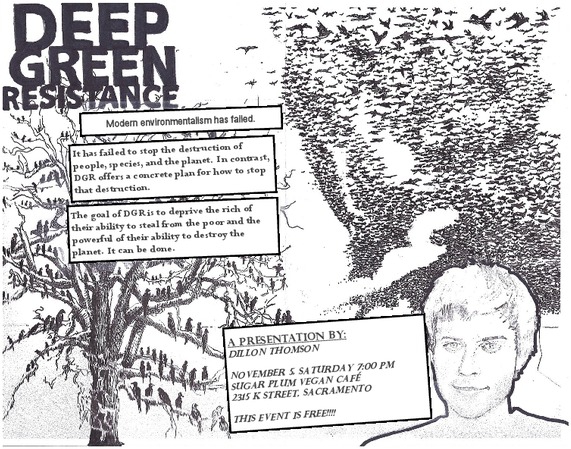 DEEP
GREEN
RESISTANCE
Modern environmentalism has failed.
It has failed to stop the destruction of
people, species, and the planet. In contrast,
DGR offers a concrete plan for how to stop
that destruction.
The goal of DGR is to deprive the rich of
their ability to steal from the poor and the
powerful of their ability to destroy the
planet. It can be done.
A PRESENTATION BY:
DILLON THOMSON
NOVEMBER 5, SATURDAY 7:00 PM
SUGAR PLUM VEGAN CAFÉ
2315 K STREET, SACRAMENTO
THIS EVENT IS FREE!!!!